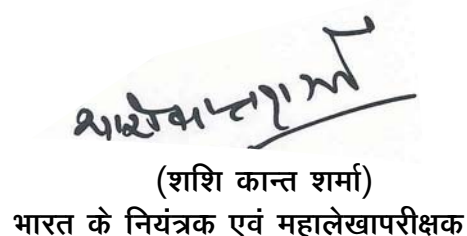 शशिकान्त शर्मा
(शशि कान्त शर्मा)
भारत के नियंत्रक एवं महालेखापरीक्षक